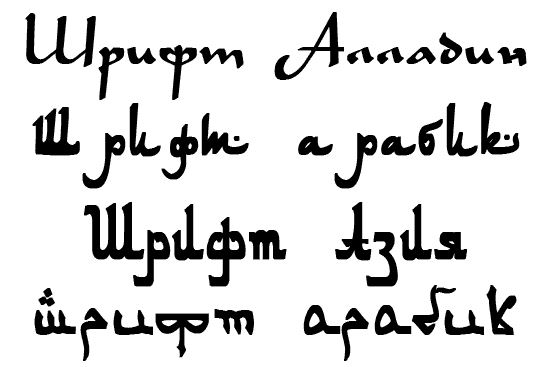 Шрифт Алладин
Шрифт арабик
Шрифт Азия
шрифт арабик